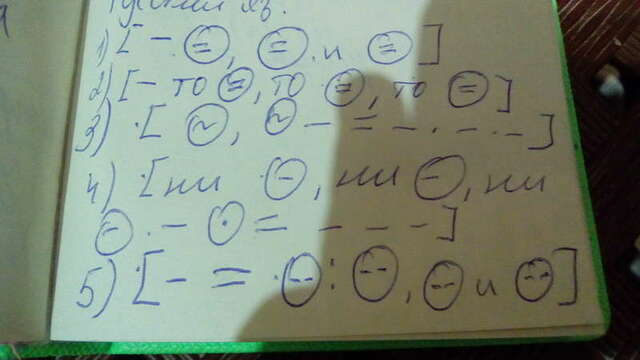 Русский яз.
1) [ – · (=), (=) · и (=) ]
2) [ – то (=), то · (=), то (=) ]
3) · [ (~), (~) – = – · – · – ]
4) · [ ни · (–), ни (–), ни
(–) · – (·) = – – – ]
5) · [ – = · (--) : (--), (--) и (--) ]